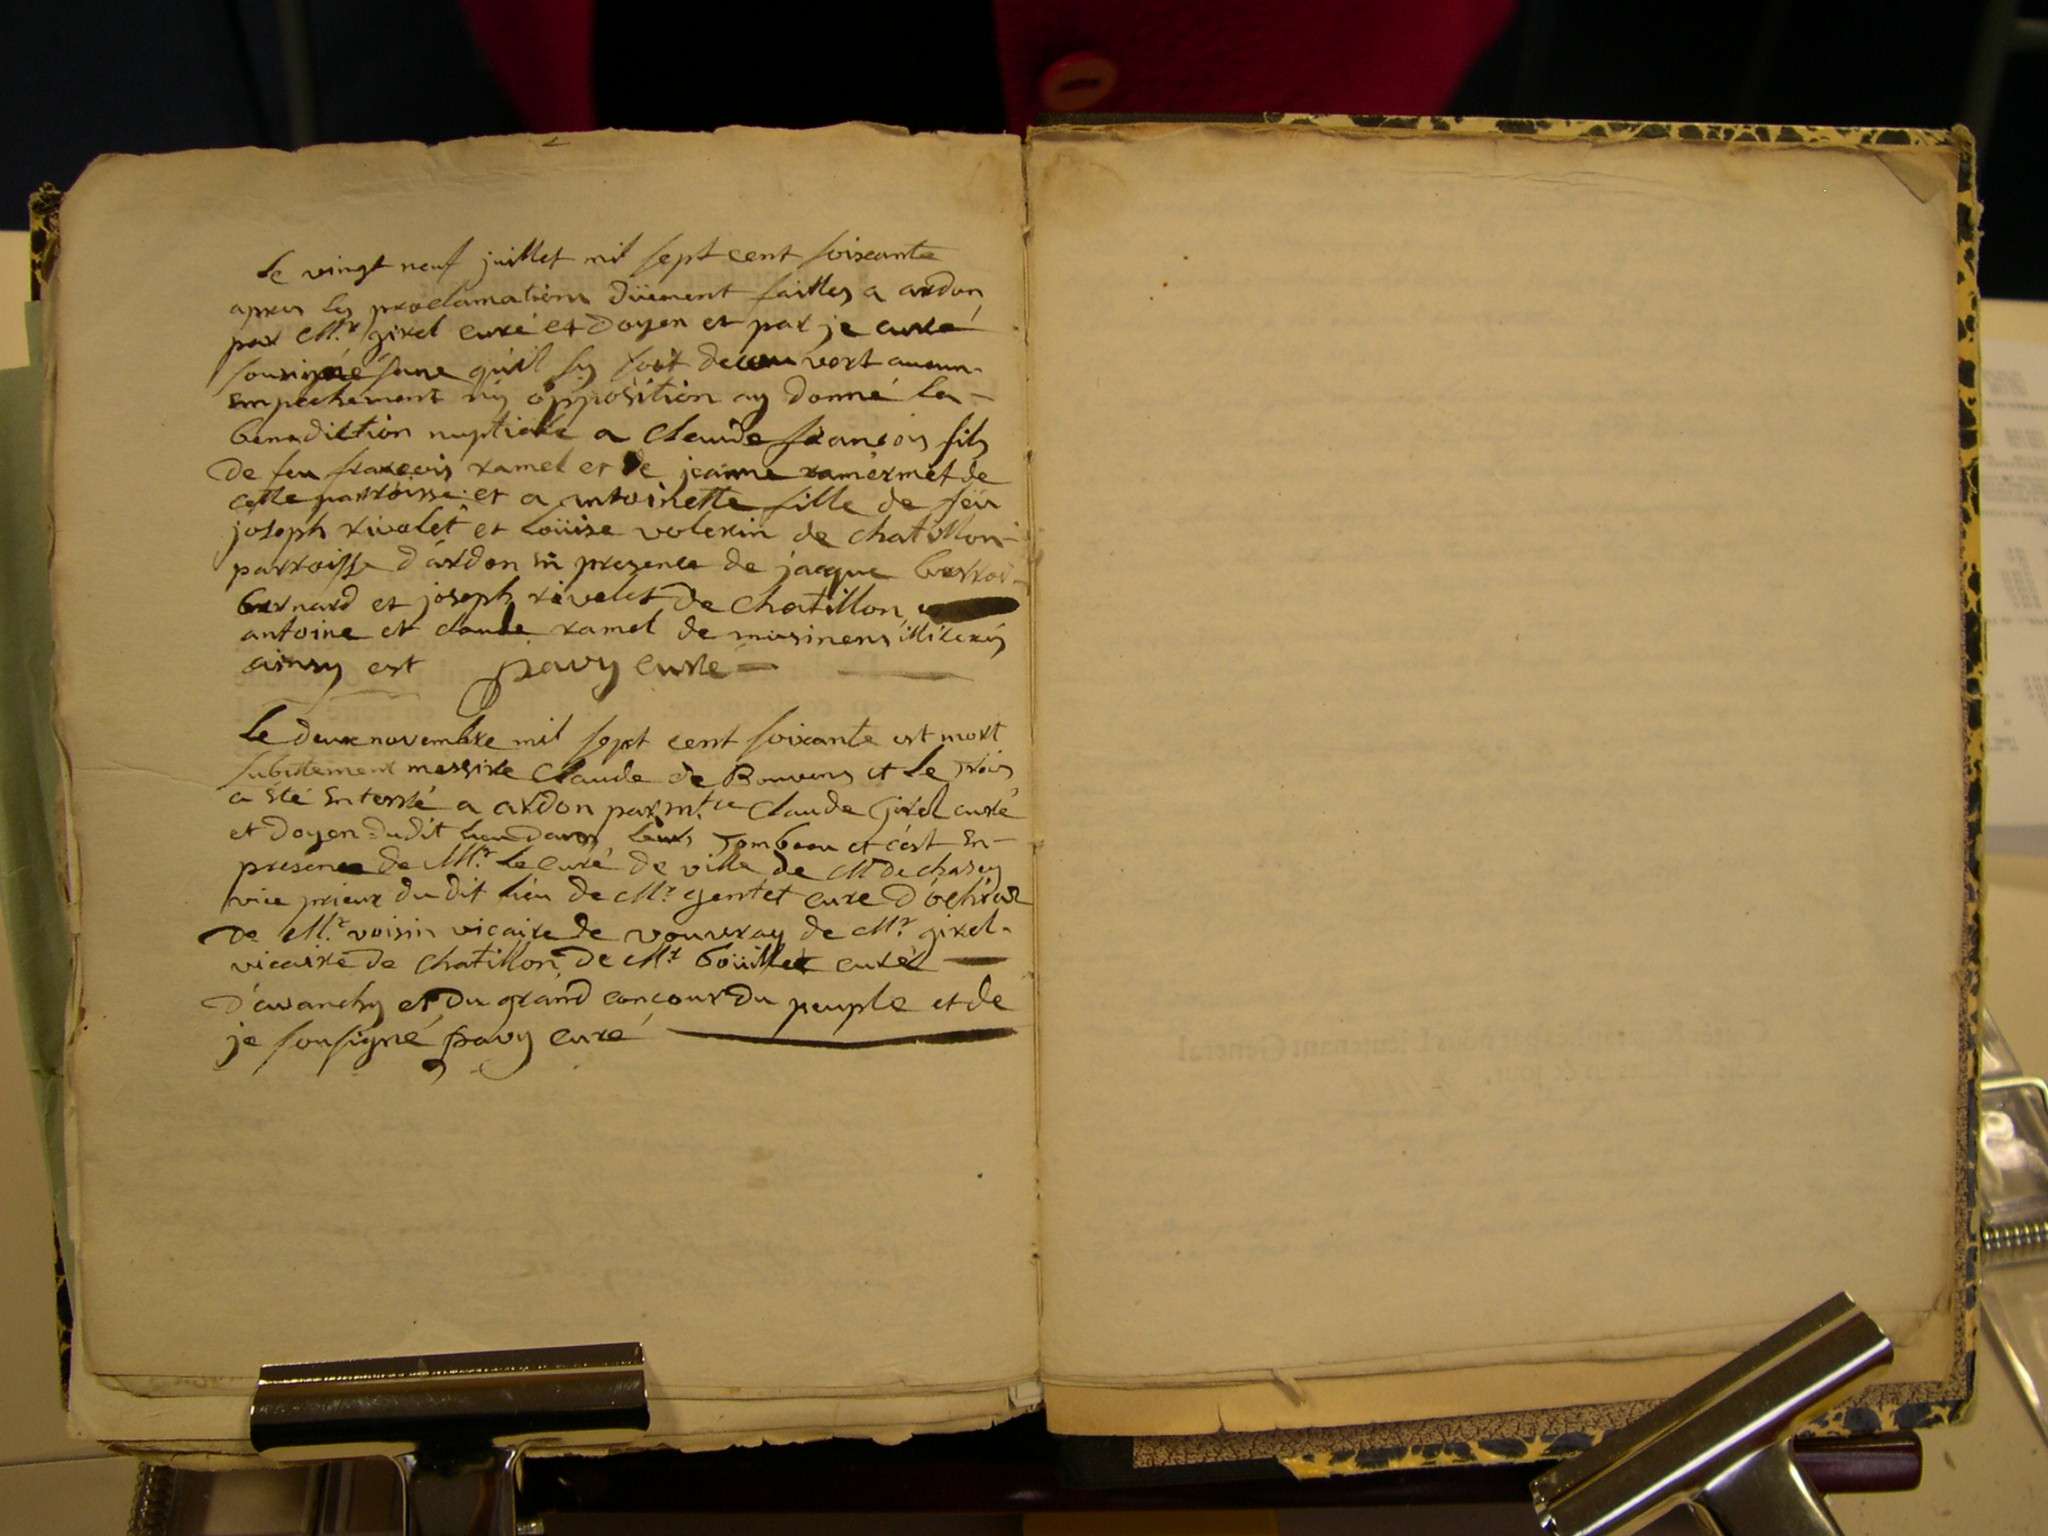 Le vingt neuf juillet mil sept cent soixante
apres les proclamations düement faittes a ardon
par Mr. girel curé et Doyen et par je curé
sousigné sans quil sy soit decouvert aucun
empechement ny opposition ay donné la
benediction nuptiale a Claude françois fils
de feu françois ramel et de jeanne ramermet de
cette parroisse et a antoinette fille de feu
joseph rivolet et Loüise volerin de chatillon
parroisse d'ardon en presence de jacque
bernard et joseph rivolet de chatillon
antoine et claude ramel de musinens illiterés
ainsy est pavy curé
Le deux novembre mil sept cent soixante est mort
subitement messire Claude de Bouvens et Le trois
a été enterré a ardon par mre Claude girel curé
et Doyen dudit lieu dans leurs Tombeau et c'est en
presence de Mr. Le curé de ville de Mr De chasey
vice prieur du dit lieu de Mr. gentet curé
de Mr. voisin vicaire de vouvray de Mr. girel
vicaire de chatillon, de Mr. boüillet curé
d'avanchy et Du grand concour du peuple et de
je sousigné pavy curé